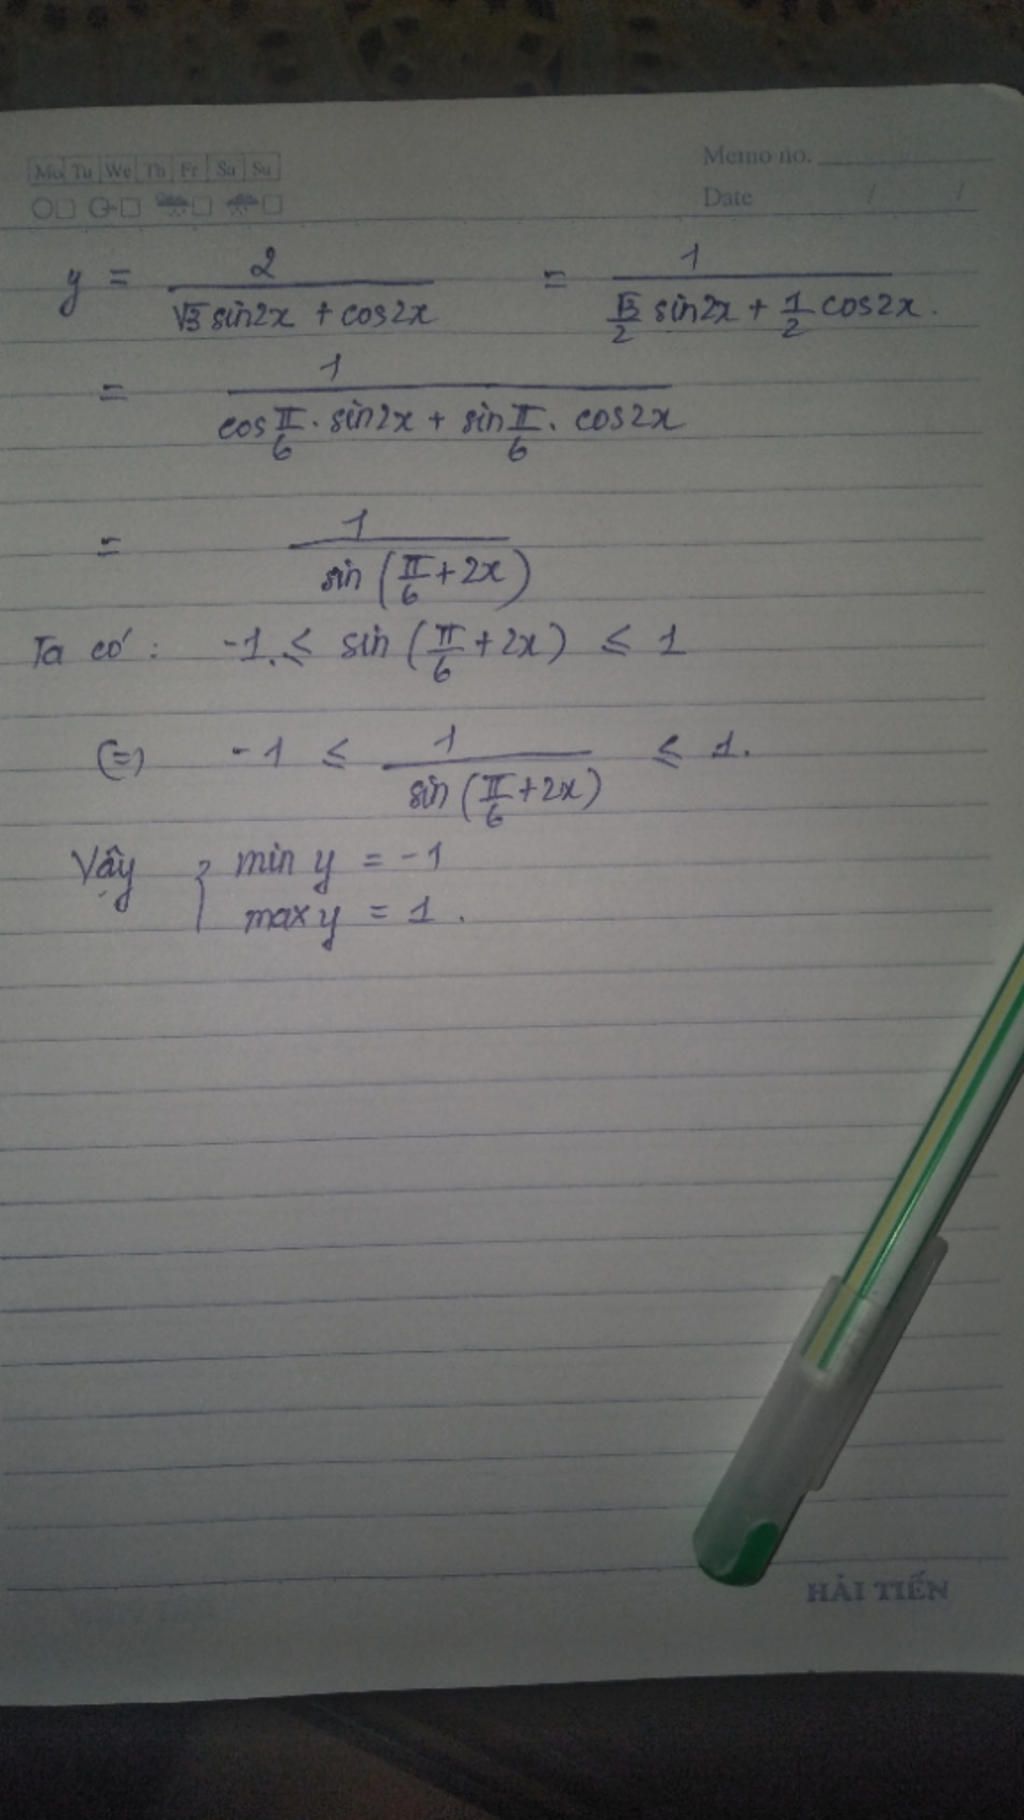 Mo Tu We Th Fr Sa Su
Memo no.
Date / /
y = 2/(√3 sin2x + cos2x) = 1/(√3/2 sin2x + 1/2 cos2x).
= 1/(cos π/6 . sin2x + sin π/6 . cos2x)
= 1/(sin (π/6 + 2x))
Ta có : -1 ≤ sin (π/6 + 2x) ≤ 1
(=) -1 ≤ 1/(sin (π/6 + 2x)) ≤ 1.
Vậy { min y = -1
max y = 1 .
HẢI TIẾN